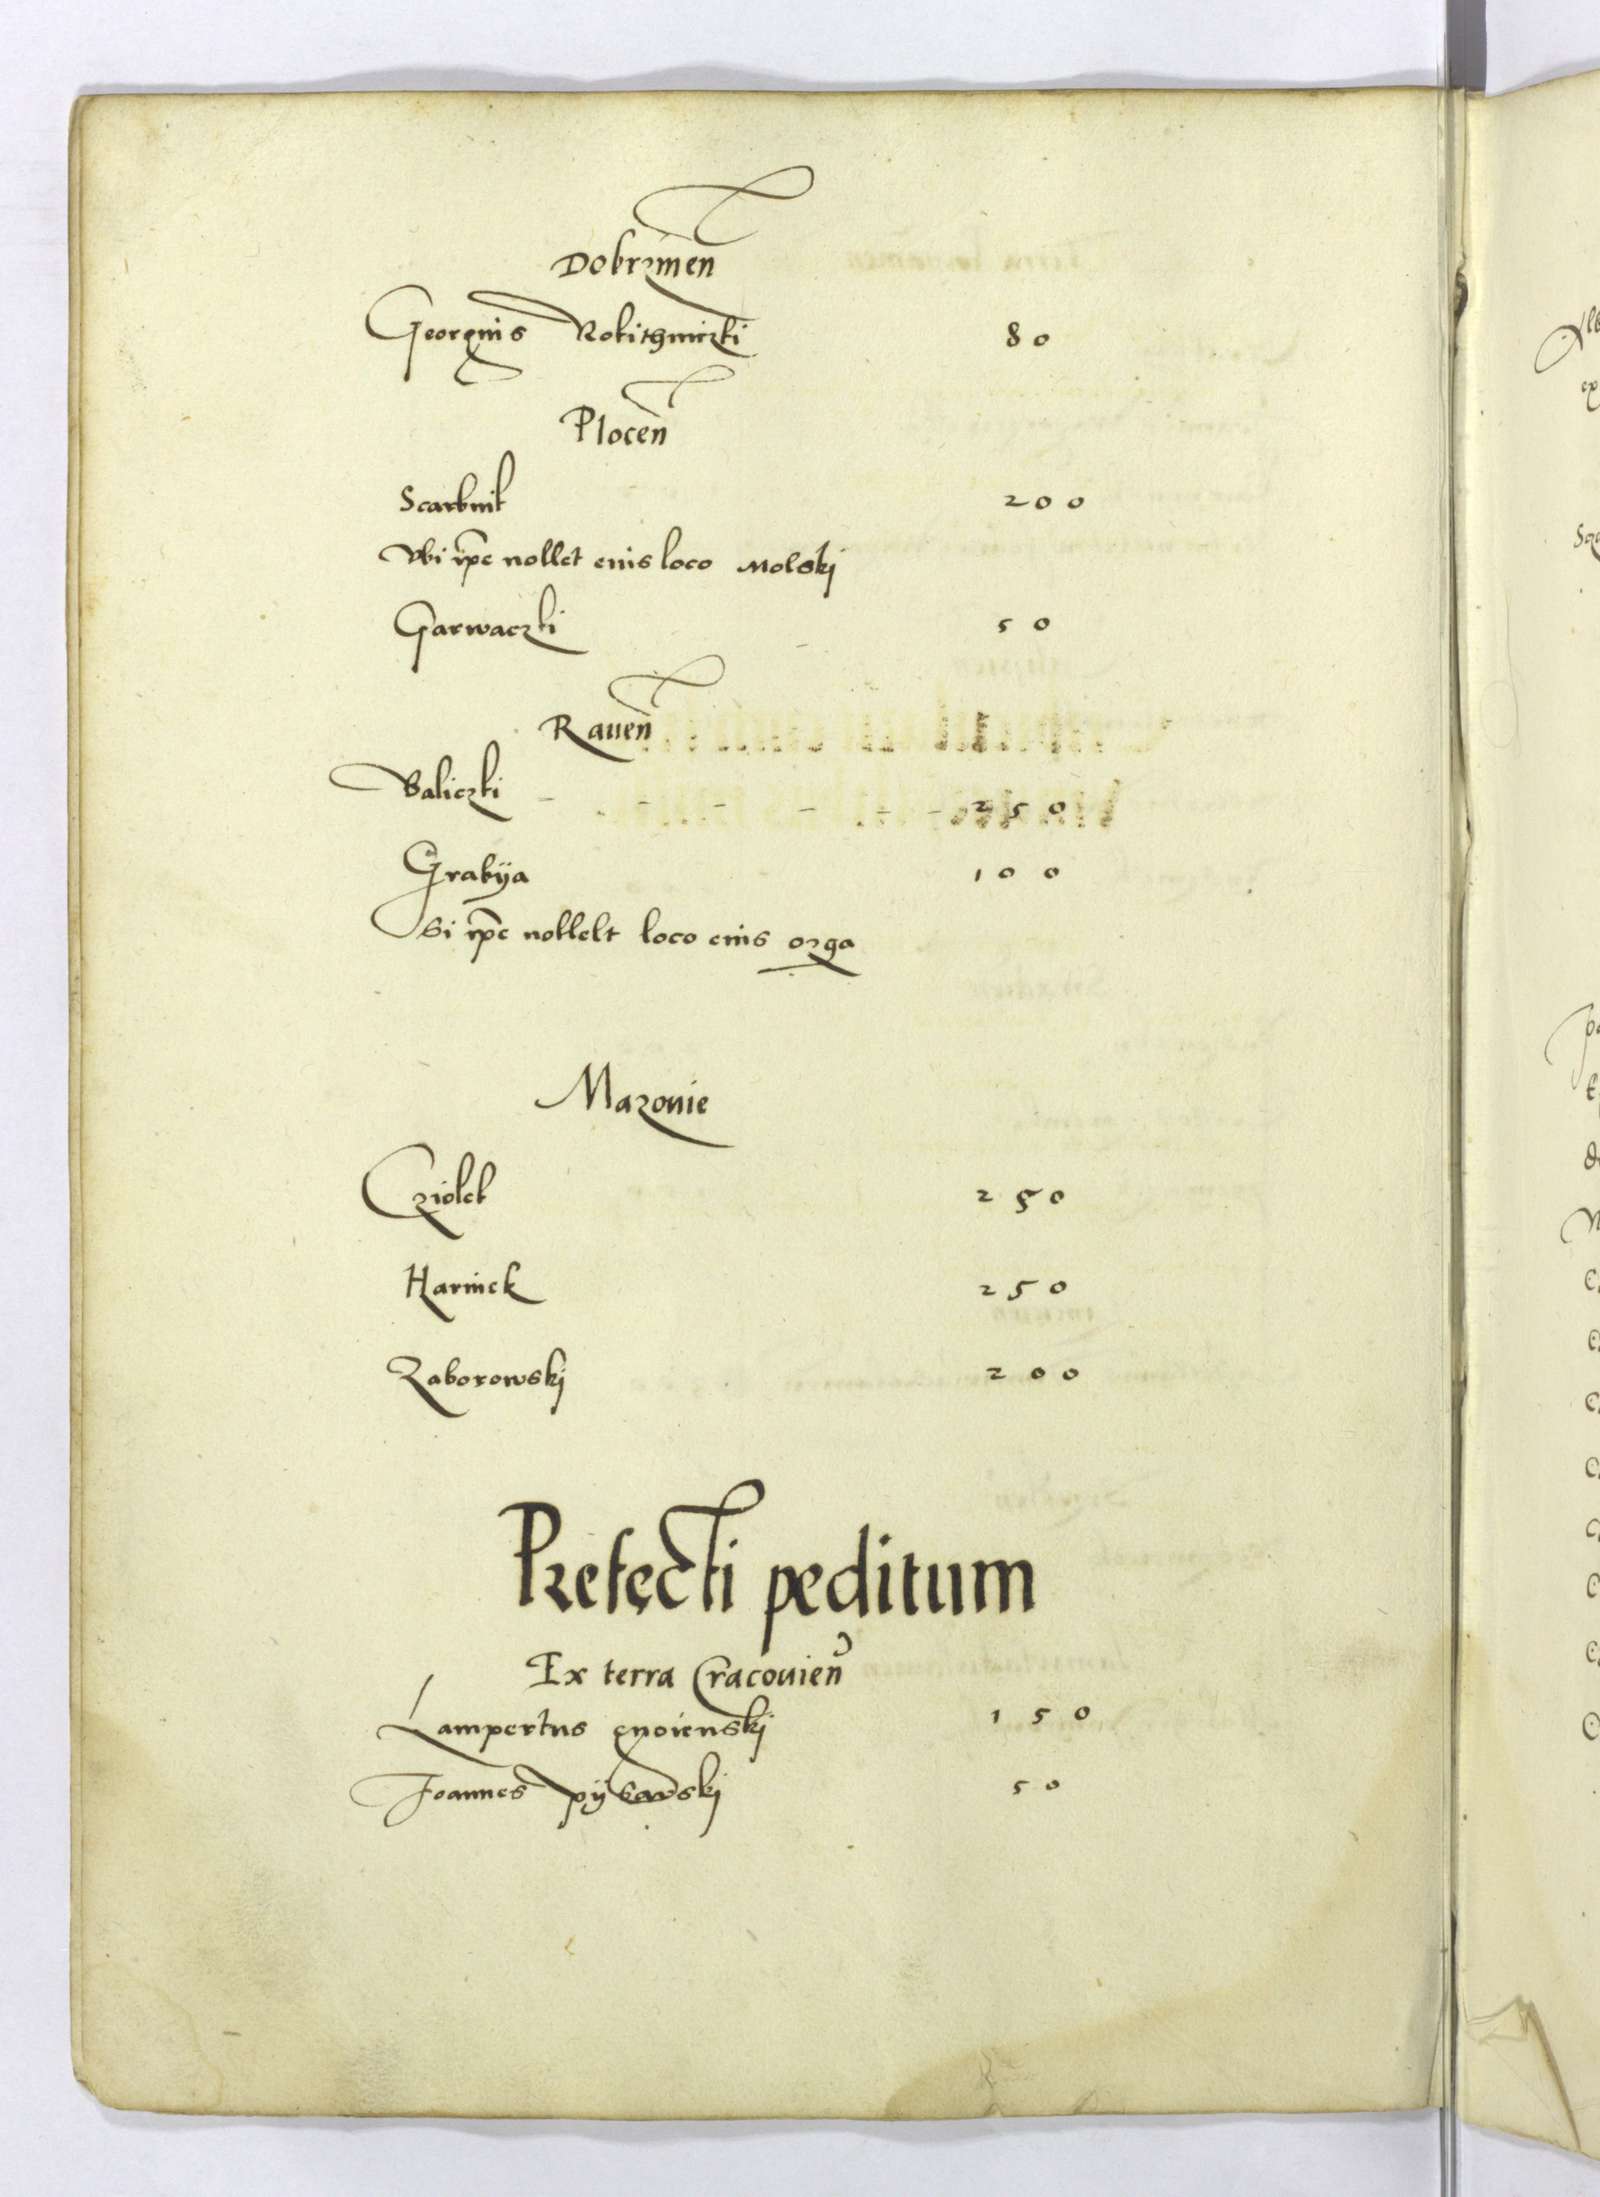 Dobrzinen̄
Georgius Rokithniczki 80
Plocen̄
Scarbnik 200
Vbi ip̄e nollet eius loco Molski
Garwaczki 50
Rauen̄
Valiczki - - - - - - 250
Grabÿa 100
Si ip̄e nollelt loco eius Ozga
Mazouie
Cziolek 250
Harinek 250
Zaborowski 200
Prefecti peditum
Ex terra Cracouien̄
Lampertus gnoienski 150
Joannes pÿkarski 50